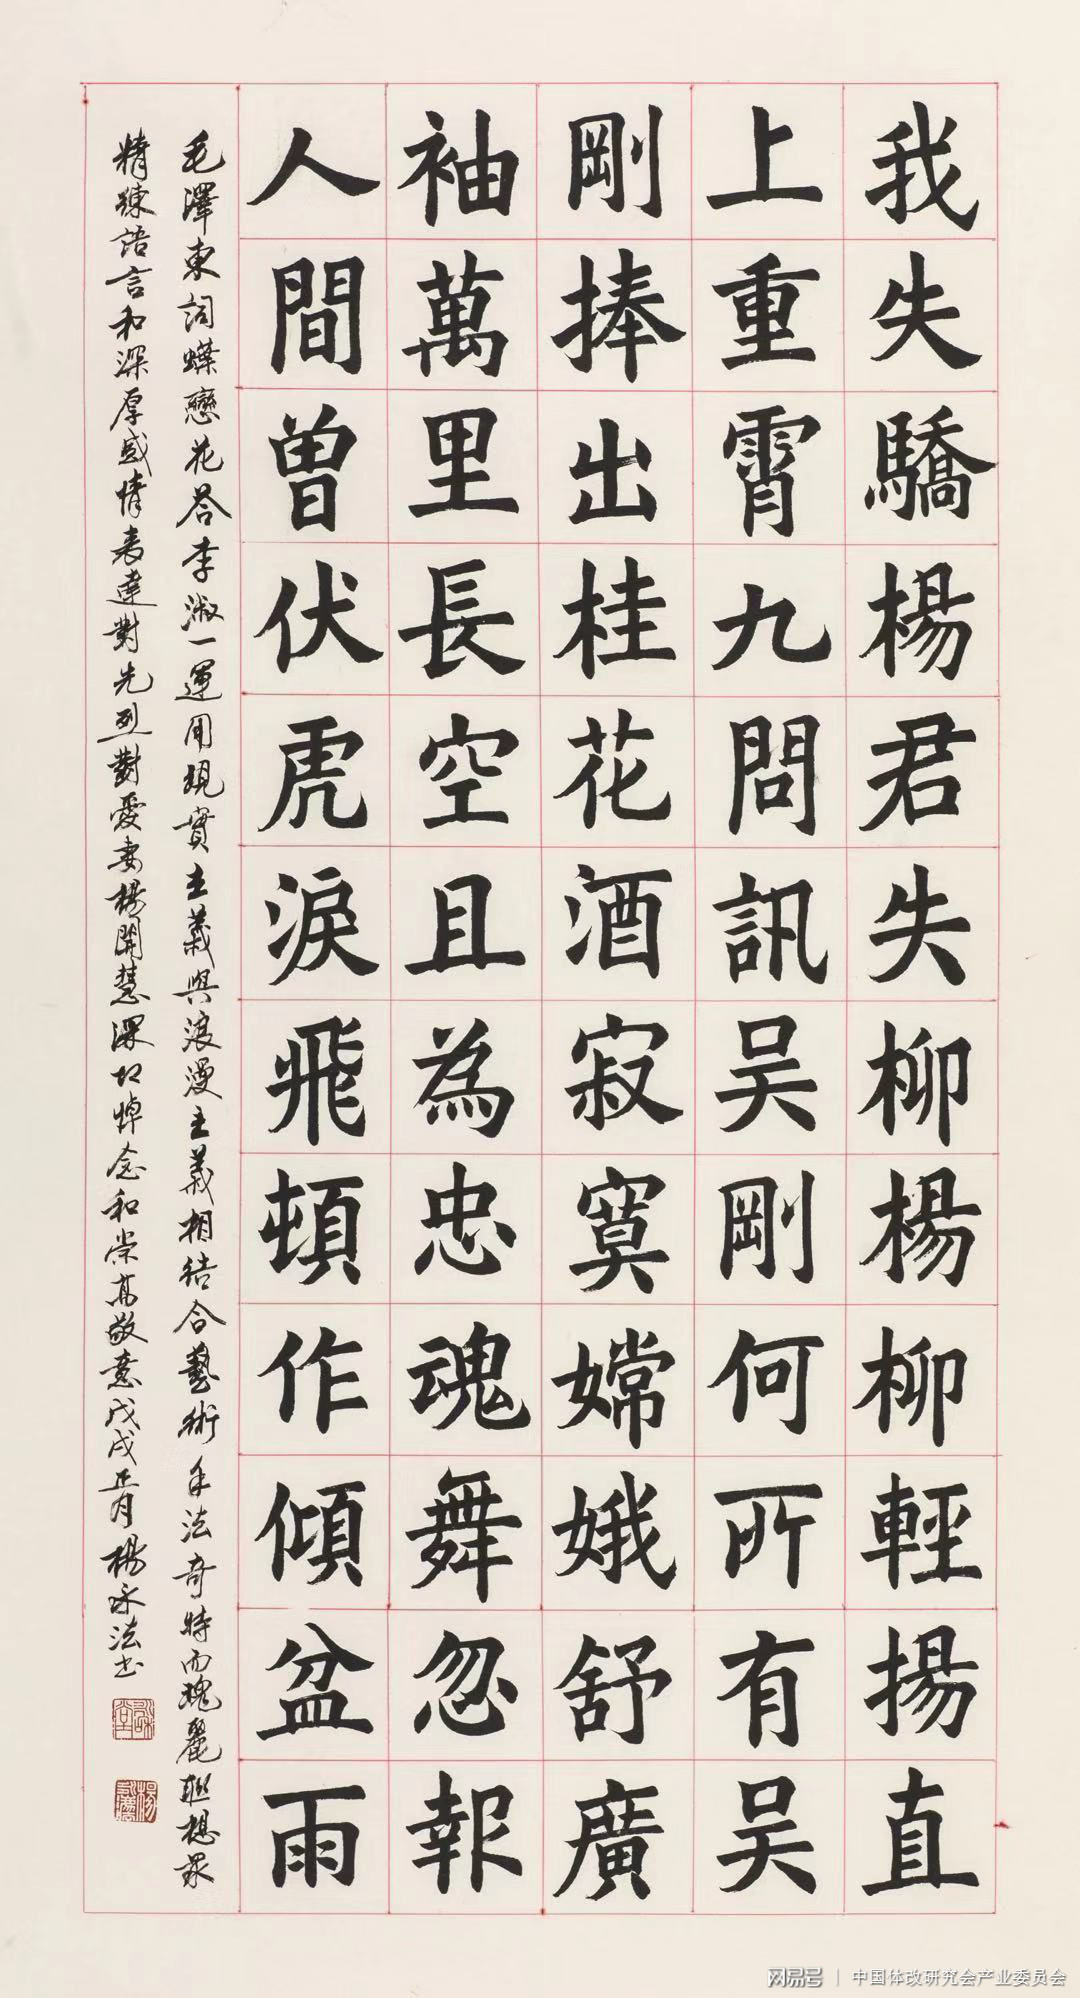 我失驕楊君失柳楊柳輕揚直
上重霄九問訊吴剛何所有吴
剛捧出桂花酒寂寞嫦娥舒廣
袖萬里長空且為忠魂舞忽報
人間曾伏虎淚飛頓作傾盆雨
毛澤東詞蝶戀花答李淑一運用現實主義與浪漫主義相結合藝術手法奇特而瑰麗聯想
精練語言和深厚感情表達對先烈對愛妻楊開慧深切悼念和崇高敬意戊戌正月楊永法书
网易号 | 中国体改研究会产业委员会